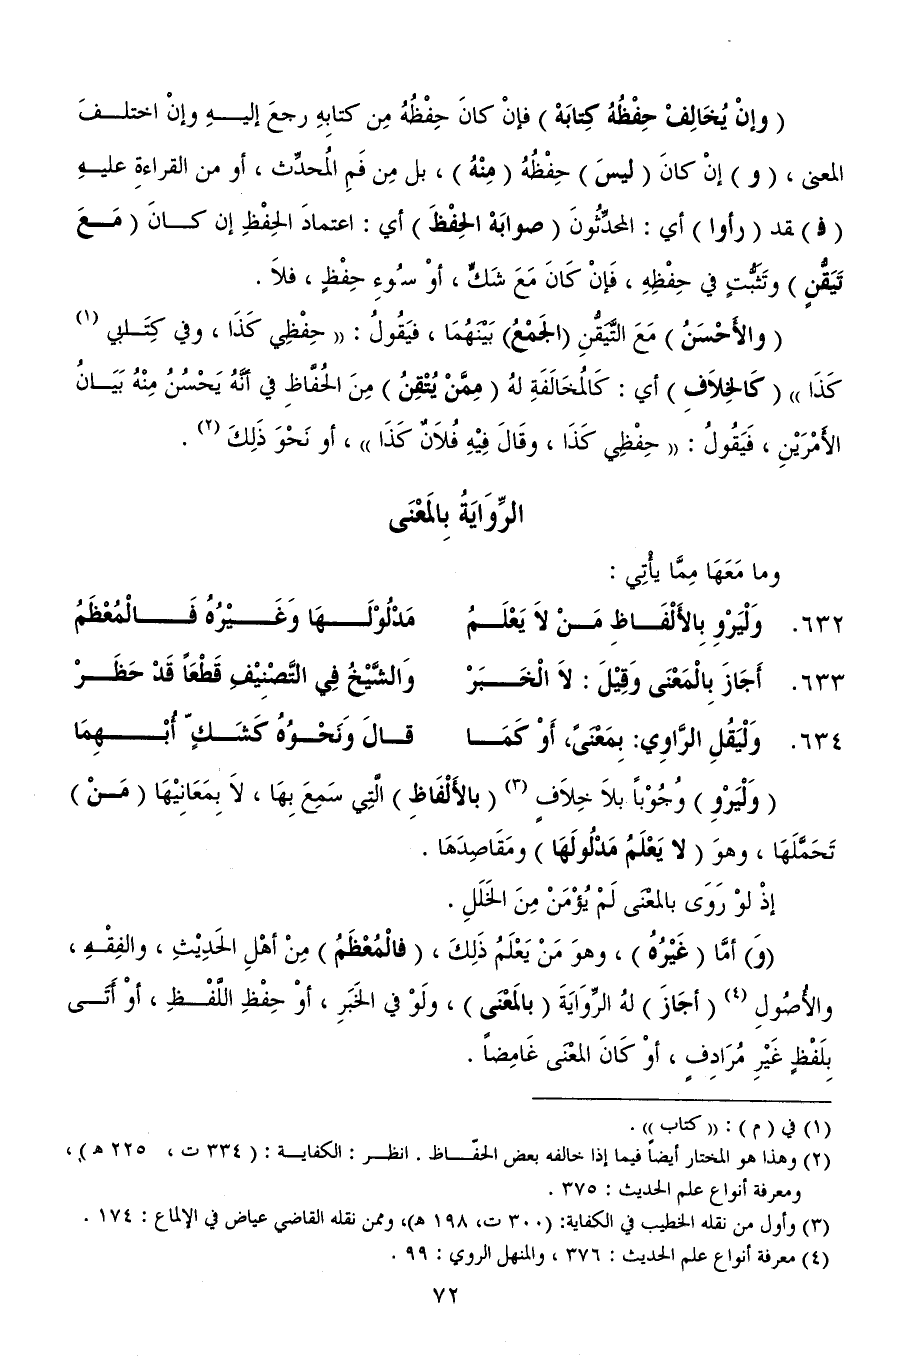 ( وإنْ يُخَالِفْ حِفْظُهُ كِتابَهْ ) فإنْ كانَ حِفْظُهُ مِن كتابهِ رجعَ إليـــهِ وإنْ اختلـفَ
المعنى ، ( و ) إنْ كانَ ( ليسَ ) حِفْظُهُ ( مِنْهُ ) ، بل مِن فَمِ المُحدِّث ، أو من القراءةِ عليـهِ
( فـ ) قد ( رأوا ) أي : المحدِّثُونَ ( صوابَهْ الحِفْظَ ) أي : اعتمادَ الحِفْظِ إن كــانَ ( مَــعَ
تَيَقُّنٍ ) وتَثَبُّتٍ في حِفْظِهِ ، فَإنْ كَانَ مَعَ شَكٍّ ، أوْ سُوءِ حِفْظٍ ، فلاَ .
( والأَحْسَنُ ) مَعَ التَّيَقُّنِ (الجَمْعُ) بَيْنَهُمَا ، فَيَقُولُ : (( حِفْظِي كَذَا ، وفي كِتَابي (١)
كَذَا )) ( كَالخِلاَفِ ) أي : كَالمُخَالَفَةِ لهُ ( مِمَّنْ يُتْقِنُ ) مِنَ الحُفَّاظِ في أنَّهُ يَحْسُنُ مِنْهُ بَيَـانُ
الأَمْرَيْنِ ، فَيَقُولُ : (( حِفْظِي كَذَا ، وقَالَ فِيْهِ فُلاَنٌ كَذَا )) ، أو نَحْوَ ذَلِكَ (٢) .
الرِّوَايَةُ بِالمَعْنَى
وما مَعَهَا مِمَّا يأْتِي :
٦٣٢. وَلْيَرْوِ بِالأَلْفَــاظِ مَــنْ لاَ يَعْلَــمُ مَدْلُوْلَـــهَا وَغَـــيْرُهُ فَـــالْمُعْظَمُ
٦٣٣. أَجَازَ بِالْمَعْنَى وَقِيْلَ : لاَ الْخَـــبَرْ وَالشَّيْخُ فِي التَّصْنِيْفِ قَطْعَاً قَدْ حَظَـــرْ
٦٣٤. وَلْيَقُلِ الرَّاوِي: بِمَعْنَىً، أوْ كَمَــا قــالَ وَنَحْــوُهُ كَشَـكٍّ أُبْـــهِمَا
( وَلْيَرْوِ ) وُجُوْباً بلاَ خِلاَفٍ (٣) ( بالأَلْفَاظِ ) الَّتِي سَمِعَ بِهَا ، لاَ بِمَعَانِيْهَا ( مَـنْ )
تَحَمَّلَهَا ، وهوَ ( لا يَعْلَمُ مَدْلُولَهَا ) ومَقَاصِدَهَا .
إذْ لوْ رَوَى بالمَعْنَى لَمْ يُؤْمَنْ مِنَ الخَلَلِ .
(وَ) أمَّا ( غَيْرُهُ ) ، وهوَ مَنْ يَعْلَمُ ذَلِكَ ، ( فالْمُعْظَمُ ) مِنْ أهْلِ الحَدِيْثِ ، والفِقْهِ ،
والأُصُولِ (٤) ( أجَازَ ) لهُ الرِّوَايَةَ ( بالمَعْنَى ) ، ولَوْ في الخَبَرِ ، أوْ حِفْظِ اللَّفْــظِ ، أوْ أَتَــى
بِلَفْظٍ غَيْرِ مُرَادِفٍ ، أوْ كَانَ المَعْنَى غَامِضاً .
(١) في ( م ) : (( كتاب )) .
(٢) وهذا هو المختار أيضاً فيما إذا خالفه بعض الحفّــاظ . انظــر : الكفايــة : ( ٣٣٤ ت ، ٢٢٥ هـ ) ،
ومعرفة أنواع علم الحديث : ٣٧٥ .
(٣) وأول من نقله الخطيب في الكفاية: (٣٠٠ ت، ١٩٨ هـ)، وممن نقله القاضي عياض في الإلماع : ١٧٤ .
(٤) معرفة أنواع علم الحديث : ٣٧٦ ، والمنهل الروي : ٩٩ .
٧٢